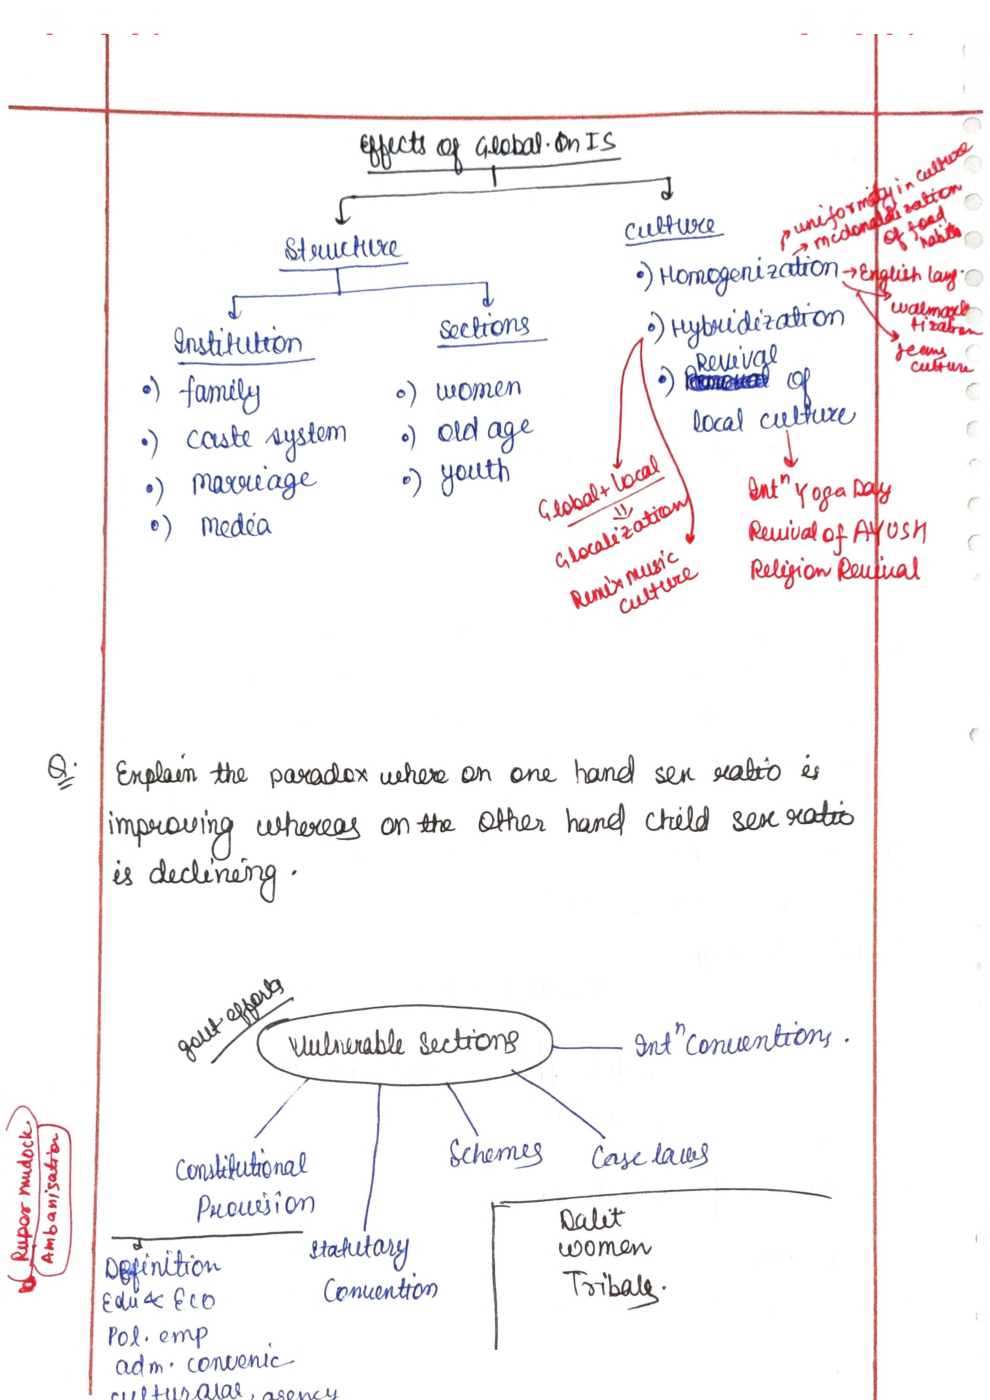 Effects of Global. On IS
Structure
Culture
Institution
•) family
•) caste system
•) marriage
•) media
Sections
•) women
•) old age
•) youth
•) Homogenization
uniformity in culture
mcdonaldization
of food
habits
English lang.
walmart
tization
Jeans
culture
•) Hybridization
Global + Local
Glocalization
Remix music
culture
•) Revival of
local culture
Intⁿ Yoga Day
Revival of AYUSH
Religion Revival
Q. Explain the paradox where on one hand sex ratio is
improving whereas on the other hand child sex ratio
is declining.
govt efforts
Vulnerable Sections
Intⁿ Conventions.
Constitutional
Provision
Statutary
Convention
Schemes
Case laws
Definition
Edu & Eco
Pol. emp
adm. convenic
agency
Dalit
women
Tribals.
Ruper mudock
Ambanisation